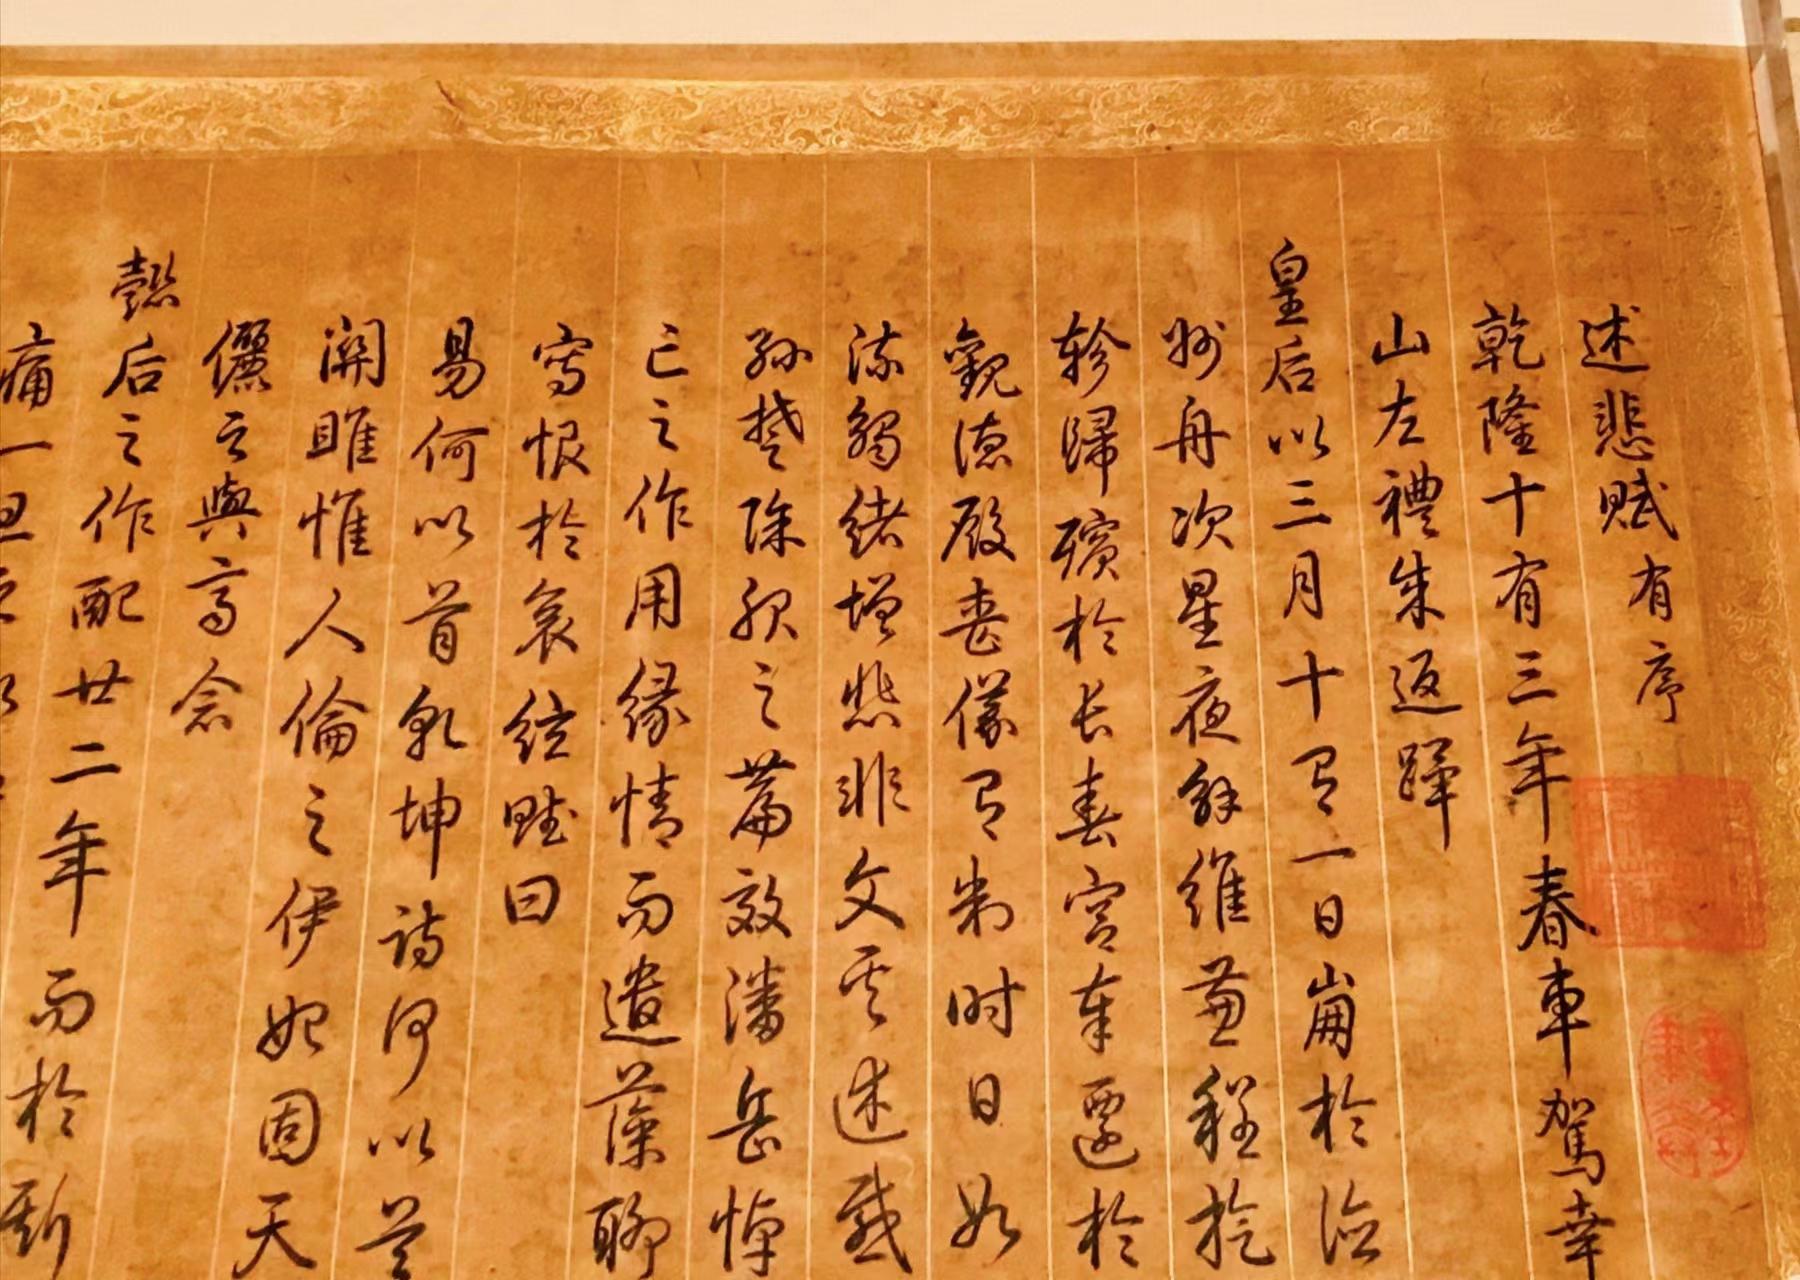 述悲賦有序
乾隆十有三年春車駕幸
山左禮成返蹕
皇后以三月十有一日崩於德
州舟次星夜解維兼程
軫歸殯於長春宮奉遷於
觀德殿喪儀有制時日如
流觸緒增悲非文莫述感
孫楚除服之篇效潘岳悼
亡之作用緣情而遣藻聊
寫恨於哀絃賦曰
易何以首乾坤詩何以首
關雎惟人倫之伊始固天
儷之與齊念
懿后之作配廿二年而於斯
痛一旦之永